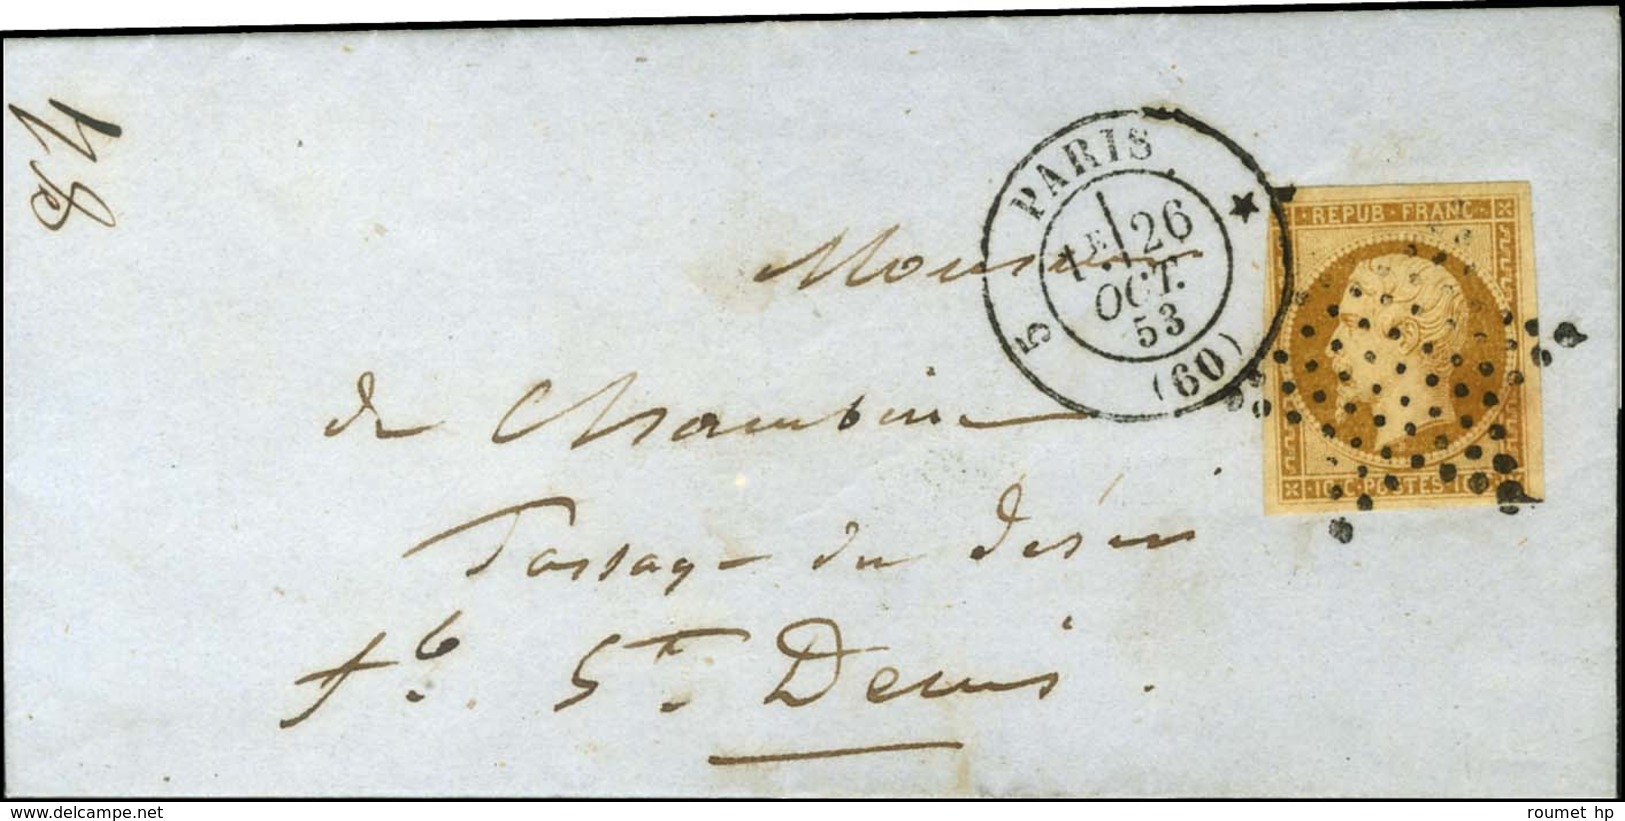 PARIS
5
1E 26
OCT.
53
(60)
REPUB · FRANC
10 C · POSTES 10
Monsieur
de
Passage du désir
fb. St. Denis.
www.delcampe.net
roumet hp